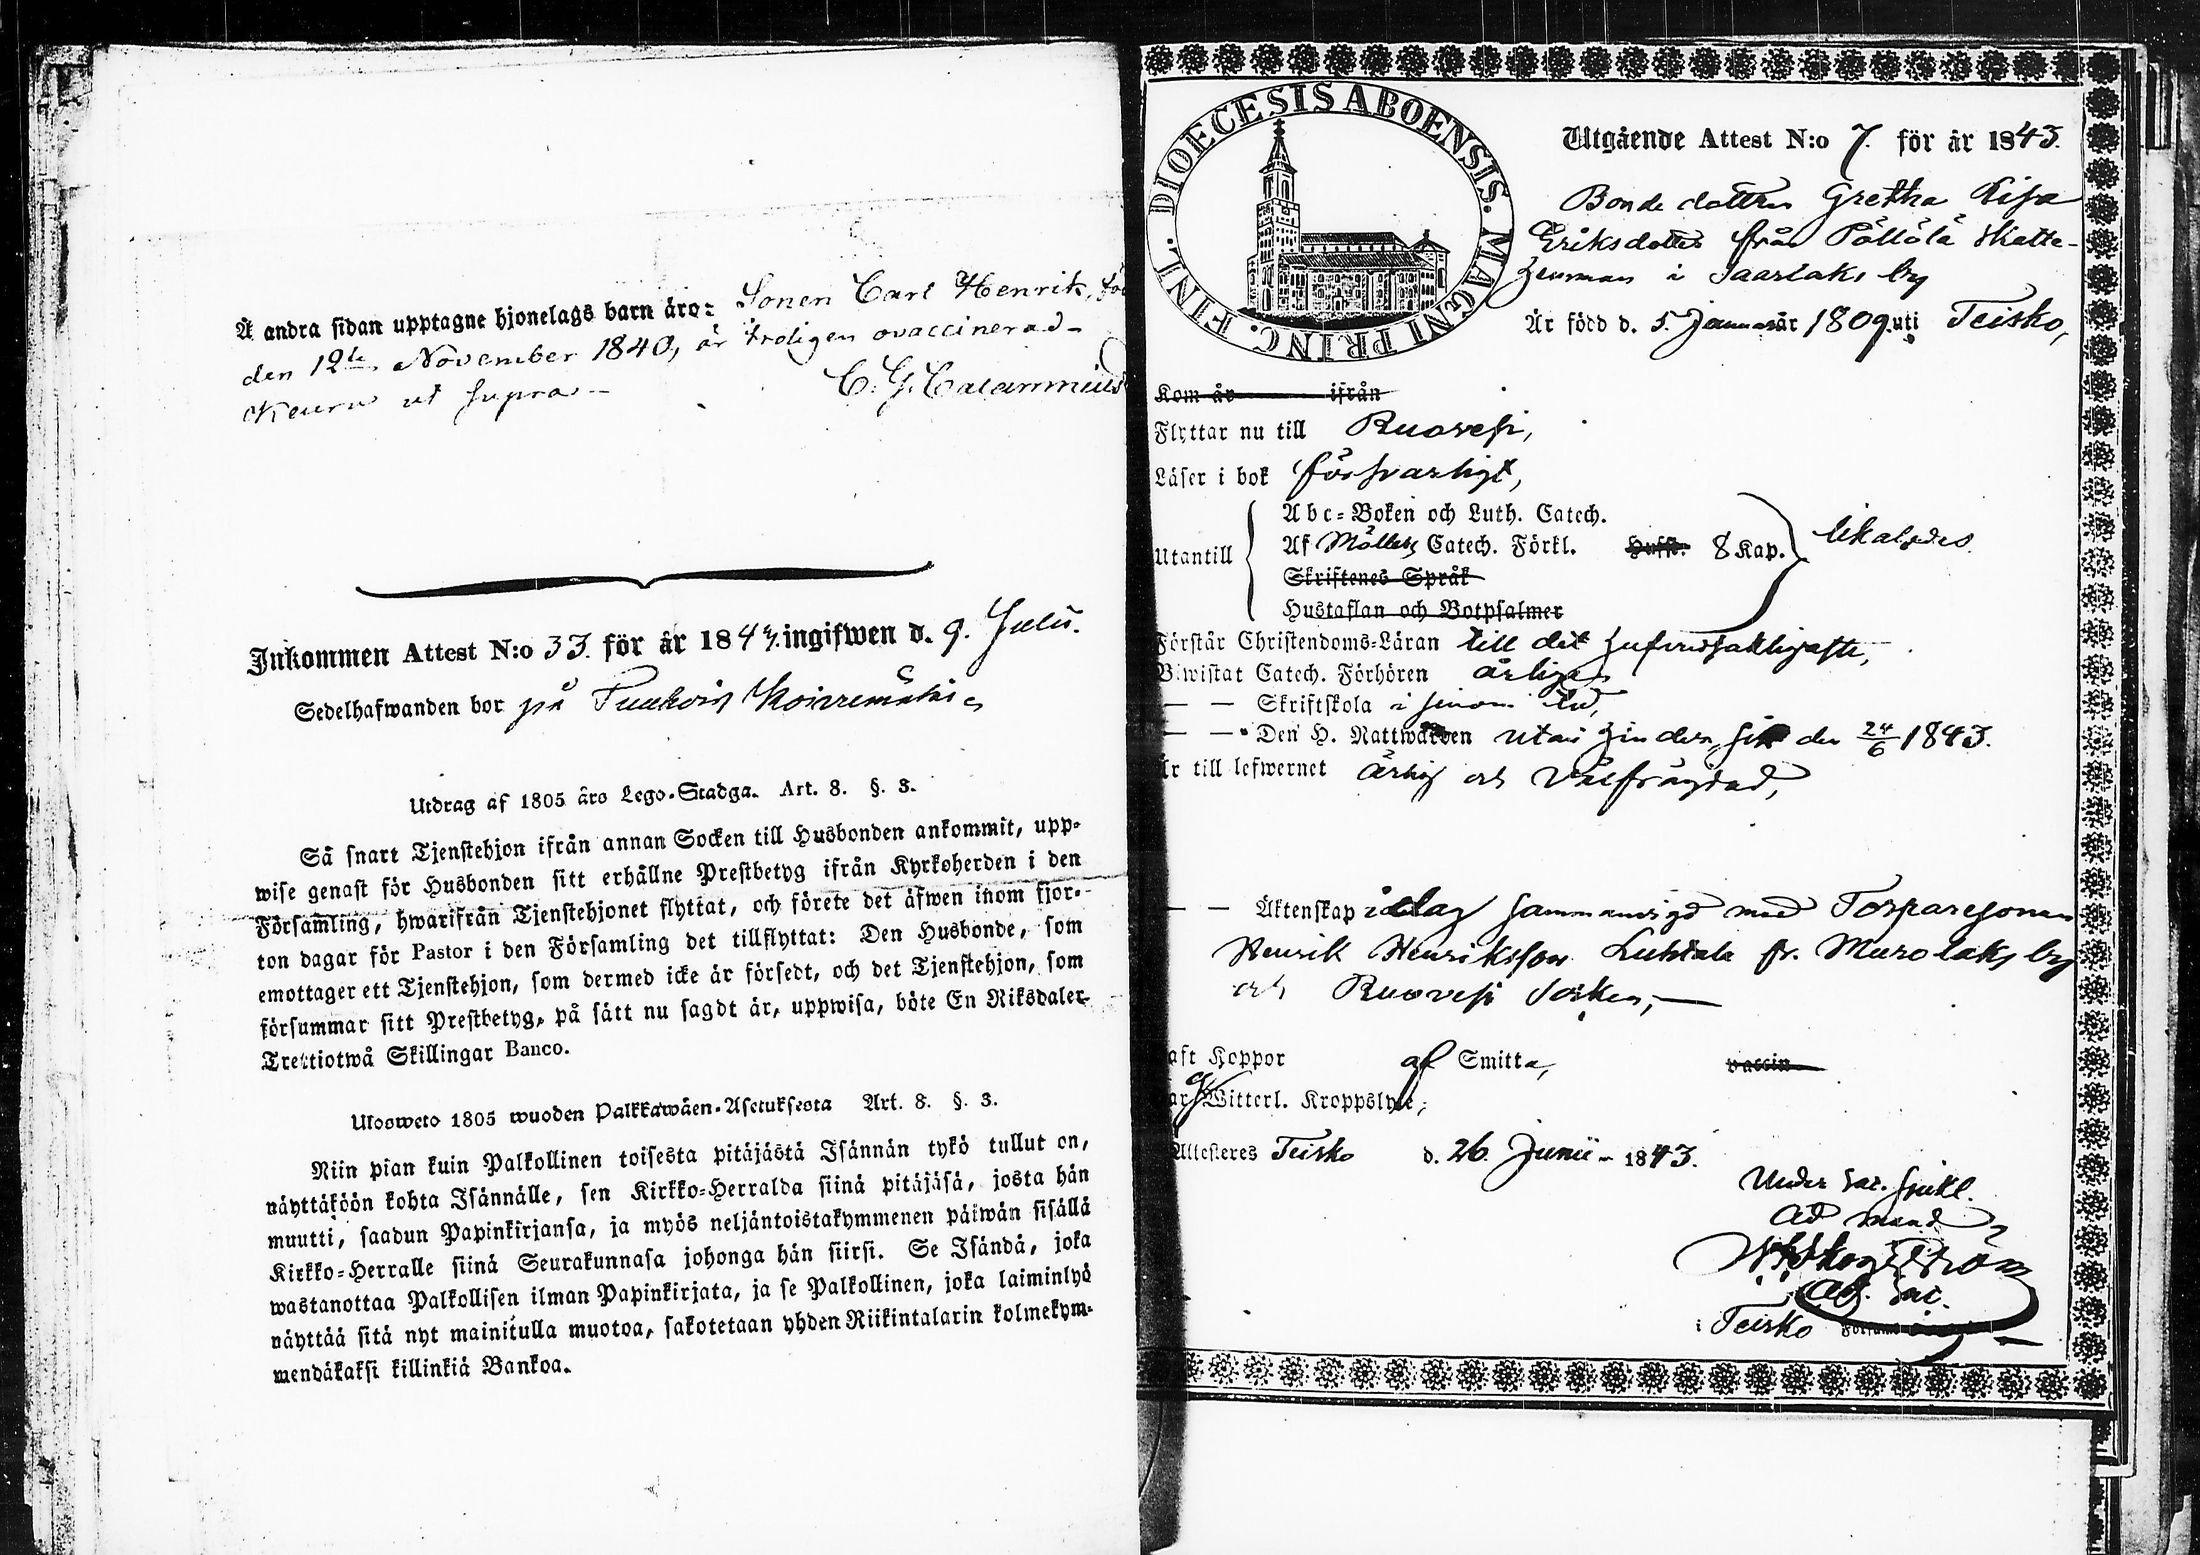 Å andra sidan upptagne hjonelags barn äro: Sonen Carl Henrik, föd
den 12te November 1840, är troligen ovaccinerad.
Keuru ut supra
C. G. Calamnius
Inkommen Attest N:o 33. för år 1843. ingifwen d. 9. Julii.
Sedelhafwanden bor på
Utdrag af 1805 års Lego-Stadga. Art. 8. §. 3.
Så snart Tjenstehjon ifrån annan Socken till Husbonden ankommit, upp-
wise genast för Husbonden sitt erhållne Prestbetyg ifrån Kyrkoherden i den
Församling, hwarifrån Tjenstehjonet flyttat, och förete det äfwen inom fjor-
ton dagar för Pastor i den Församling det tillflyttat: Den Husbonde, som
emottager ett Tjenstehjon, som dermed icke är försedt, och det Tjenstehjon, som
försummar sitt Prestbetyg, på sätt nu sagdt är, uppwisa, böte En Riksdaler
Trettiotwå Skillingar Banco.
Ulosweto 1805 wuoden Palkkawäen-Asetuksesta Art. 8. §. 3.
Niin pian kuin Palkollinen toisesta pitäjästä Isännän tykö tullut on,
näyttäköön kohta Isännälle, sen Kirkko-Herralda siinä pitäjäsä, josta hän
muutti, saadun Papinkirjansa, ja myös neljäntoistakymmenen päiwän sisällä
Kirkko-Herralle siinä Seurakunnasa johonga hän siirsi. Se Isändä, joka
wastanottaa Palkollisen ilman Papinkirjata, ja se Palkollinen, joka laiminlyö
näyttää sitä nyt mainitulla muotoa, sakotetaan yhden Riikintalarin kolmekym-
mendäkaksi killinkiä Bankoa.
DIOECESIS ABOENSIS. MAGNI PRINC. FINL.
Utgående Attest N:o 7. för år 1843.
Bonde dottren Gretha Lisa
Eriksdotter från Pöllölä Skatte-
hemman i Saarlaks by
Är född d. 5. Januarii år 1809. uti Teisko,
Kom år ifrån
Flyttar nu till Ruovesi,
Läser i bok försvarligt,
Utantill
Abc-Boken och Luth. Catech.
Af Möllers Catech. Förkl. Hufst. 8 Kap. likaledes
Skriftenes Språk
Hustaflan och Botpsalmer
Förstår Christendoms-Läran till det hufvudsakligaste,
Biwistat Catech. Förhören årligen
— — Skriftskola i sinom tid,
— — Den H. Nattwarden utan hinder, sist den 24/6 1843.
Är till lefwernet ärlig och välfrägdad,
— — Äktenskap idag sammanvigd med Torparesonen
Henrik Henriksson Luhtala fr. Murolaks by
och Ruovesi Socken,
Haft Koppor af Smitta, vaccin
Har Witterl. Kroppslyte;
Attesteras Teisko d. 26 Junii 1843.
Under vac. sjukl.
ad mand
Skogström
Adj. Sac.
i Teisko Församl.